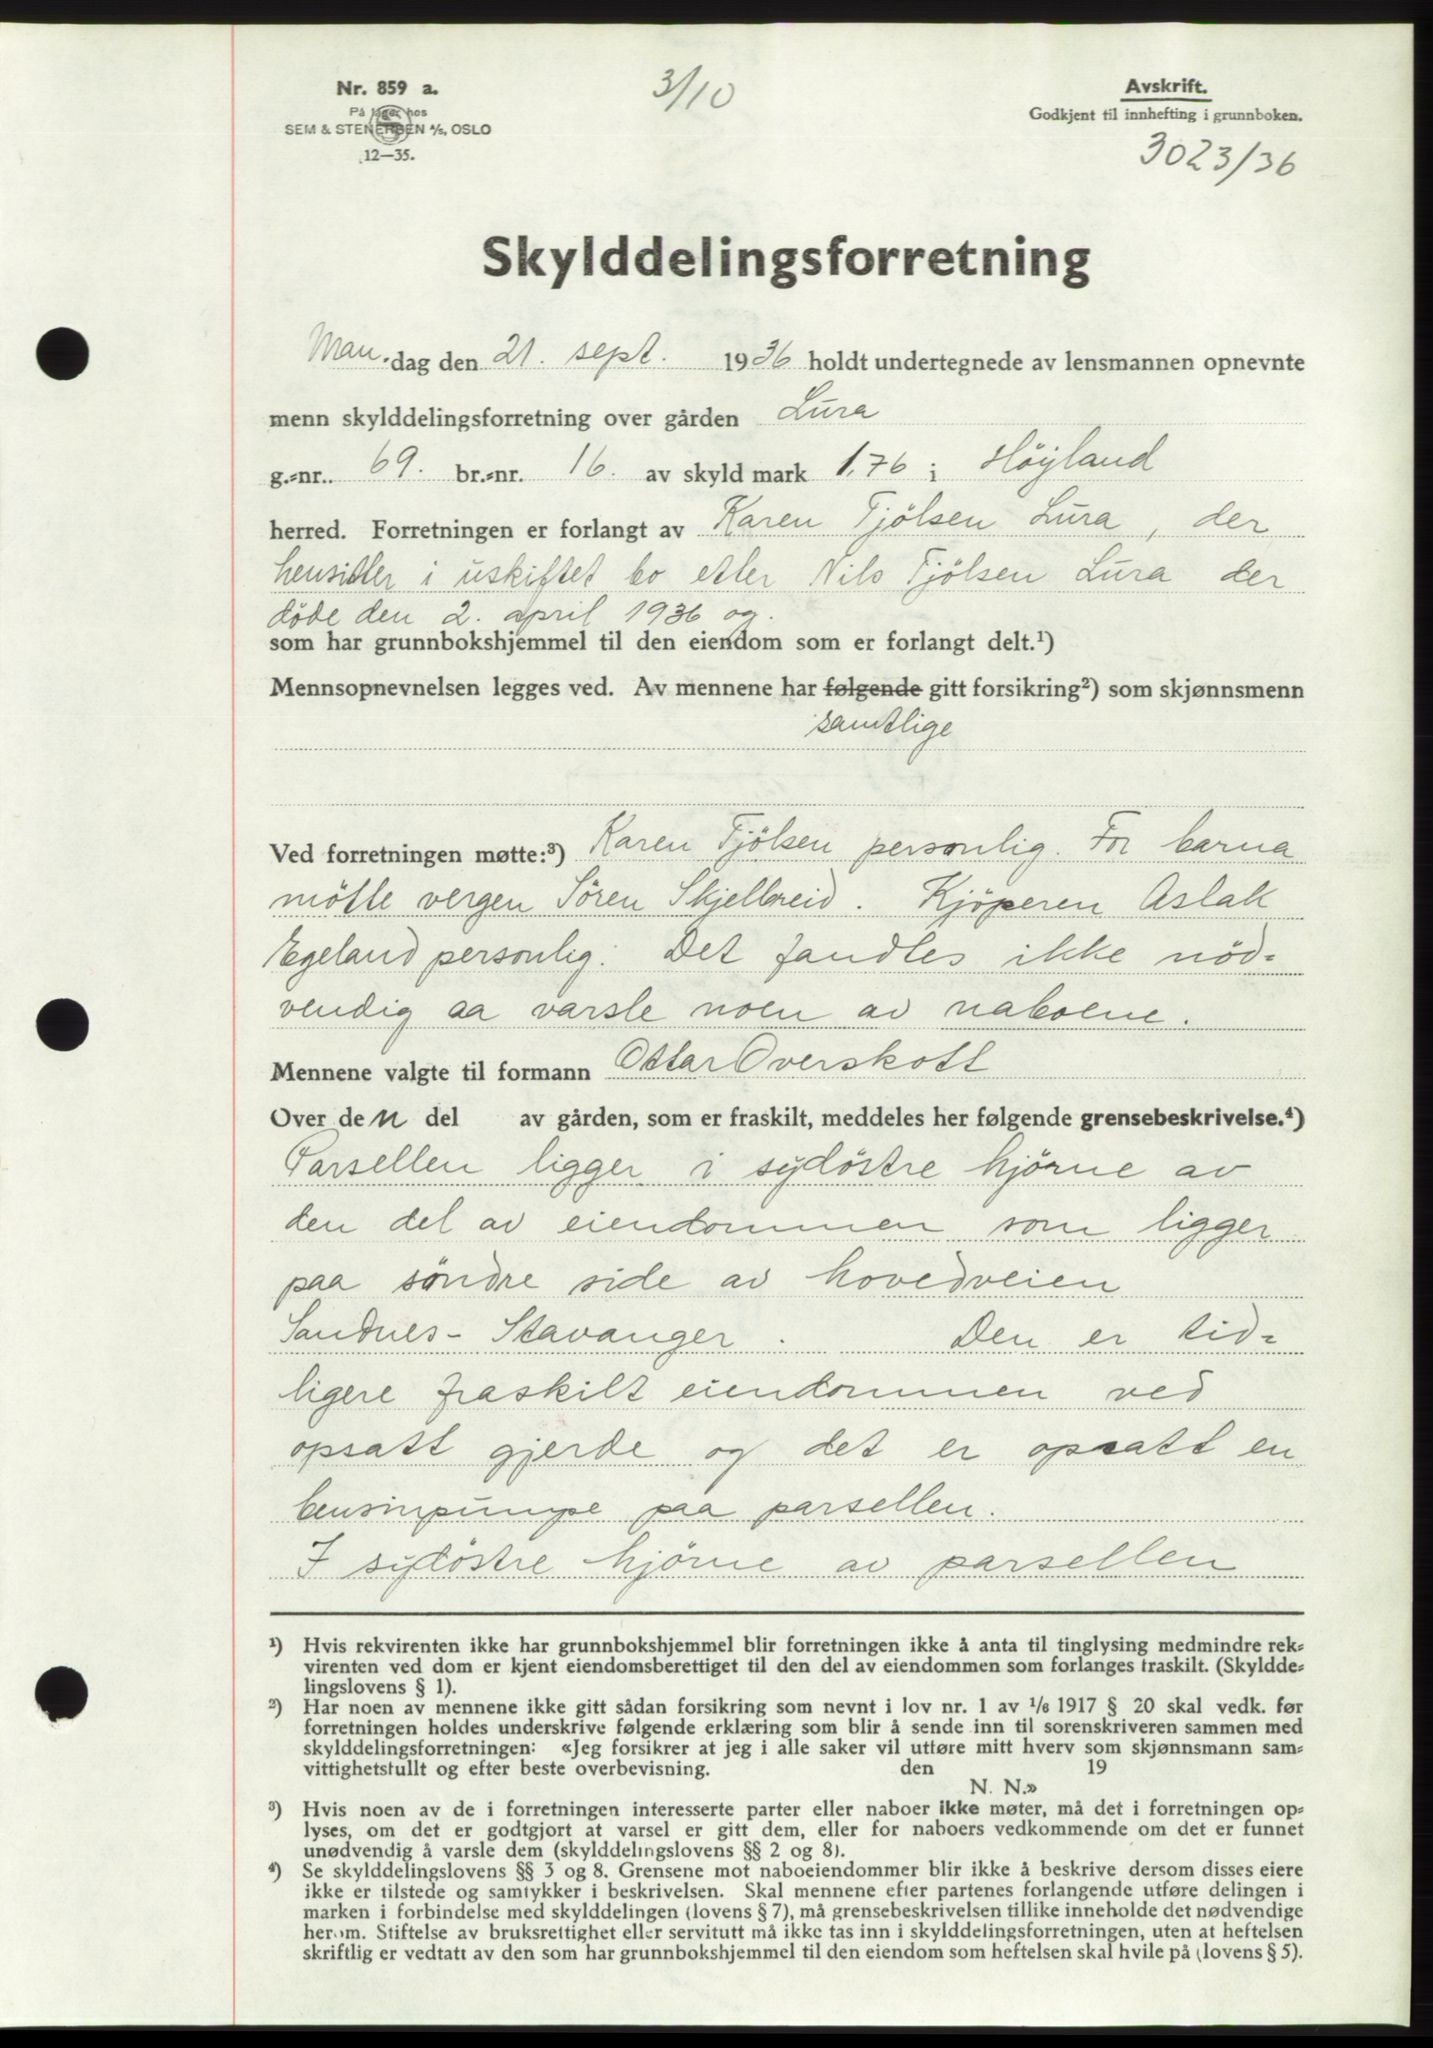 Nr. 859 a.
På lager hos
SEM & STENERSEN A/S, OSLO
12—35.
3/10
Avskrift.
Godkjent til innhefting i grunnboken.
3023/36
Skylddelingsforretning
Man.dag den 21. sept. 1936 holdt undertegnede av lensmannen opnevnte
menn skylddelingsforretning over gården Lura
g.=nr.. 69. br.=nr. 16. av skyld mark 1,76 i Höyland
herred. Forretningen er forlangt av Karen Tjölsen Lura, der
hensitter i uskiftet bo etter Nils Tjölsen Lura der
döde den 2. april 1936 og.
som har grunnbokshjemmel til den eiendom som er forlangt delt.¹)
Mennsopnevnelsen legges ved. Av mennene har følgende gitt forsikring²) som skjønnsmenn
samtlige
Ved forretningen møtte:³) Karen Tjölsen personlig. For barna
mötte vergen Sören Skjelbreid. Kjöperen Aslak
Egeland personlig. Det fandtes ikke nöd=
vendig aa varsle noen av naboene.
Mennene valgte til formann Ottar Overskott
Over den del av gården, som er fraskilt, meddeles her følgende grensebeskrivelse.⁴)
Parsellen ligger i sydöstre hjörne av
den del av eiendommen som ligger
paa söndre side av hovedveien
Sandnes - Stavanger. Den er tid=
ligere fraskilt eiendommen ved
opsatt gjerde og det er opsatt en
bensinpumpe paa parsellen.
I sydöstre hjörne av parsellen
¹) Hvis rekvirenten ikke har grunnbokshjemmel blir forretningen ikke å anta til tinglysing medmindre rek=
virenten ved dom er kjent eiendomsberettiget til den del av eiendommen som forlanges fraskilt. (Skyldde=
lingslovens § 1).
²) Har noen av mennene ikke gitt sådan forsikring som nevnt i lov nr. 1 av 1/6 1917 § 20 skal vedk. før
forretningen holdes underskrive følgende erklæring som blir å sende inn til sorenskriveren sammen med
skylddelingsforretningen: «Jeg forsikrer at jeg i alle saker vil utføre mitt hverv som skjønnsmann sam=
vittighetsfullt og efter beste overbevisning. den 19
N. N.»
³) Hvis noen av de i forretningen interesserte parter eller naboer ikke møter, må det i forretningen op=
lyses, om det er godtgjort at varsel er gitt dem, eller for naboers vedkommende om det er funnet
unødvendig å varsle dem (skylddelingslovens §§ 2 og 8).
⁴) Se skylddelingslovens §§ 3 og 8. Grensene mot naboeiendommer blir ikke å beskrive dersom disses eiere
ikke er tilstede og samtykker i beskrivelsen. Skal mennene efter partenes forlangende utføre delingen i
marken i forbindelse med skylddelingen (lovens § 7), må grensebeskrivelsen tillike inneholde det nødvendige
herom. Stiftelse av bruksrettighet eller servitutt må ikke tas inn i skylddelingsforretningen, uten at heftelsen
skriftlig er vedtatt av den som har grunnbokshjemmel til den eiendom som heftelsen skal hvile på (lovens § 5).